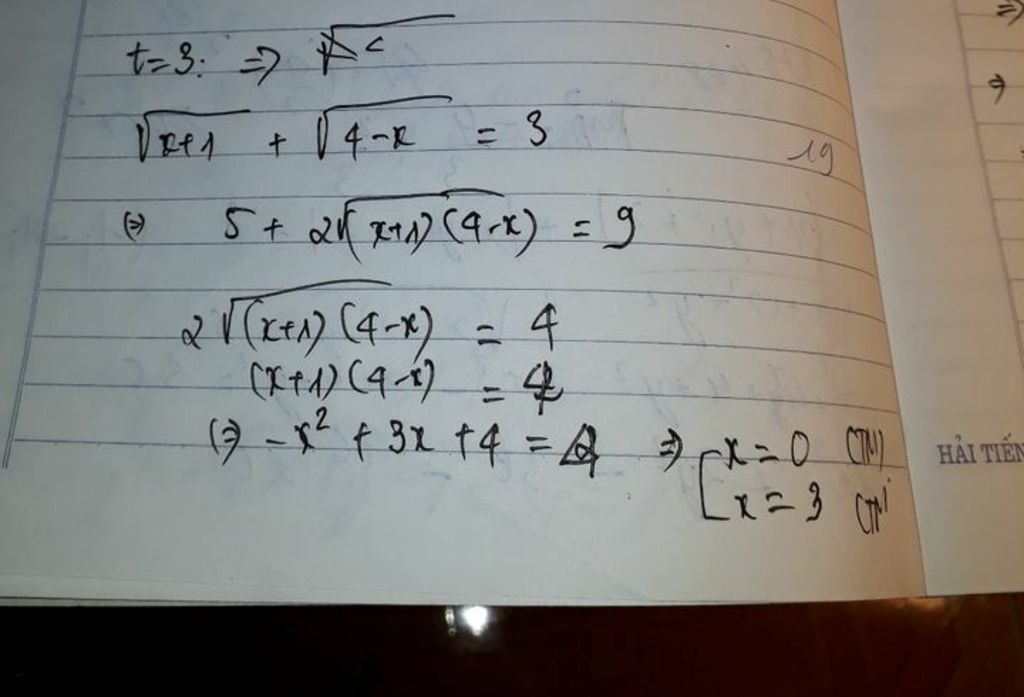 t=3: ⇒
√(x+1) + √(4-x) = 3
19
(⇒) 5 + 2√((x+1)(4-x)) = 9
2√((x+1)(4-x)) = 4
(x+1)(4-x) = 4
(⇒) -x² + 3x + 4 = 4 ⇒ [ x = 0 (TM)
x = 3 (TM)
HẢI TIẾN